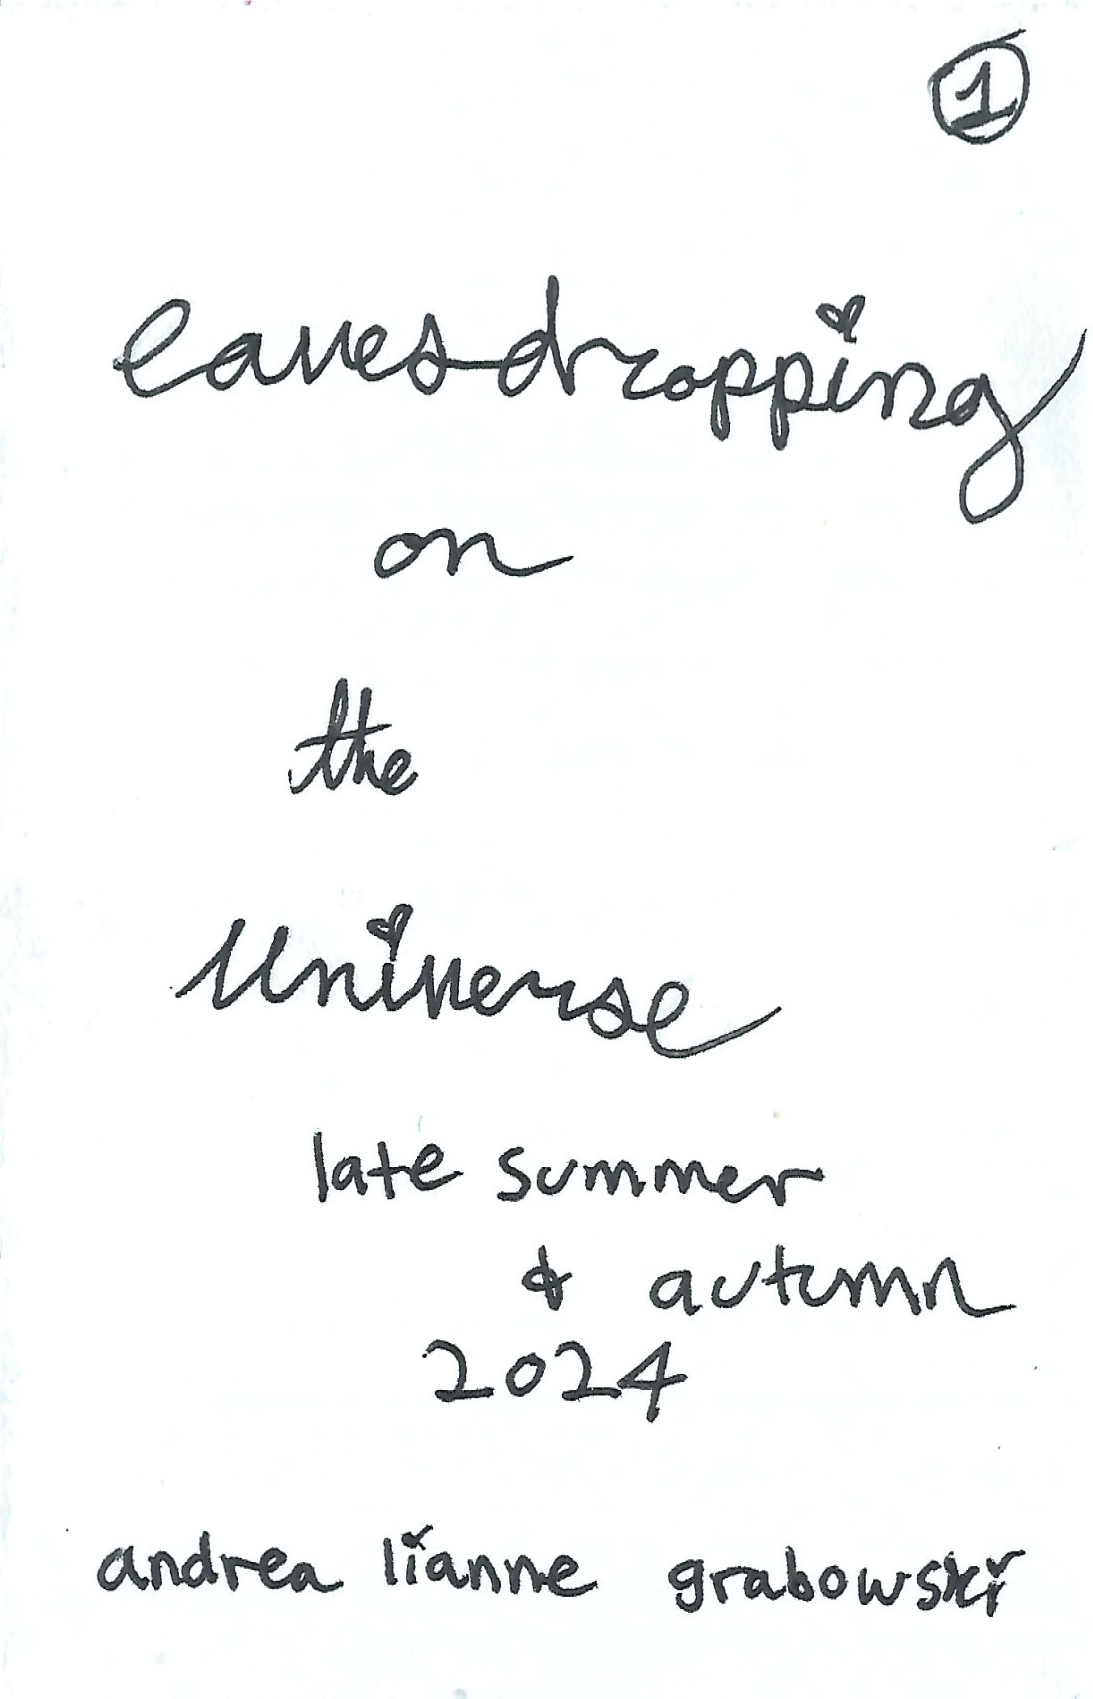 1
eavesdropping
on
the
Universe
late summer
& autumn
2024
andrea lianne grabowski